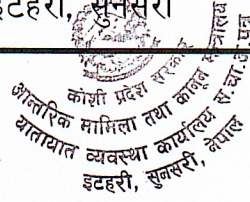 इटहरी, सुनसरी
कोशी प्रदेश सरकार
आन्तरिक मामिला तथा कानून मन्त्रालय
यातायात व्यवस्था कार्यालय स.चा.अ.प
इटहरी, सुनसरी, नेपाल